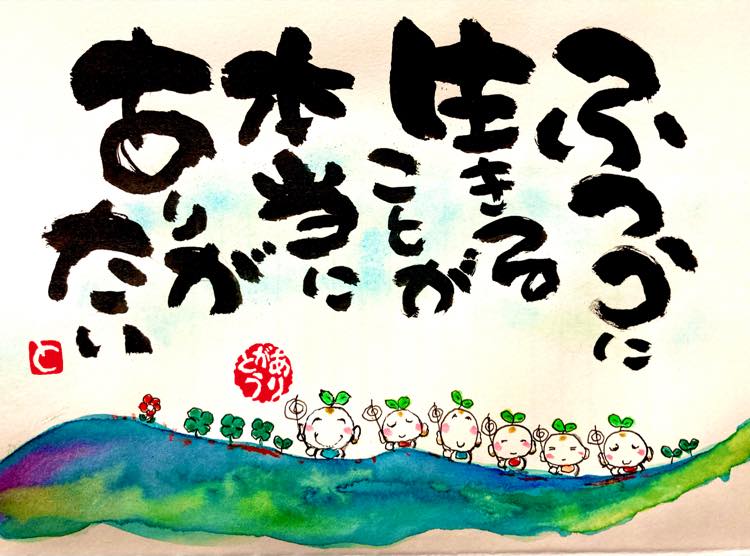 ふつうに
生きる
ことが
本当に
ありが
たい
ありがとう
と